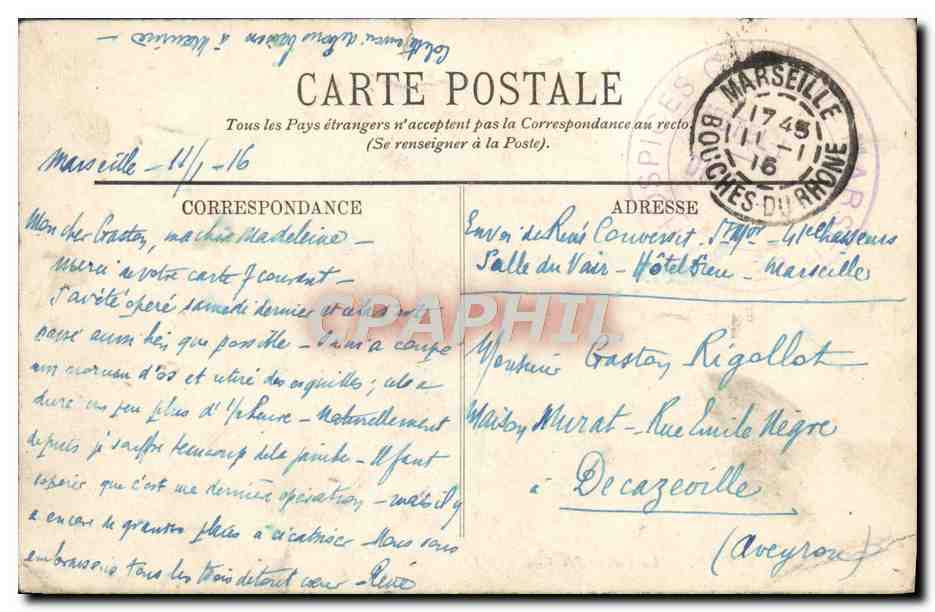 Colette envoie de bons baisers à Maurice —
CARTE POSTALE
Tous les Pays étrangers n'acceptent pas la Correspondance au recto.
(Se renseigner à la Poste).
MARSEILLE
17 45
11 - 1
16
BOUCHES-DU-RHONE
Marseille - 11/1 - 16
CORRESPONDANCE
Mon cher Gaston, ma chère Madeleine -
Merci de votre carte 7 courant -
J'ai été opéré samedi dernier et cela s'est
passé aussi bien que possible - On m'a coupé
un morceau d'os et retiré des esquilles; cela a
duré un peu plus d'1/2 heure - Naturellement
depuis je souffre beaucoup de la jambe - Il faut
espérer que c'est ma dernière opération - mais il y
a encore de grandes plaies à cicatriser - Nous vous
embrassons tous les trois de tout cœur - René
ADRESSE
Envoi de René Converset - Sgt Mjor - 41e Chasseurs
Salle du Vair - Hôtel Dieu - Marseille
Monsieur Gaston Rigollot
Maison Murat - Rue Emile Nègre
à Decazeville
(Aveyron)
CPAPHIL